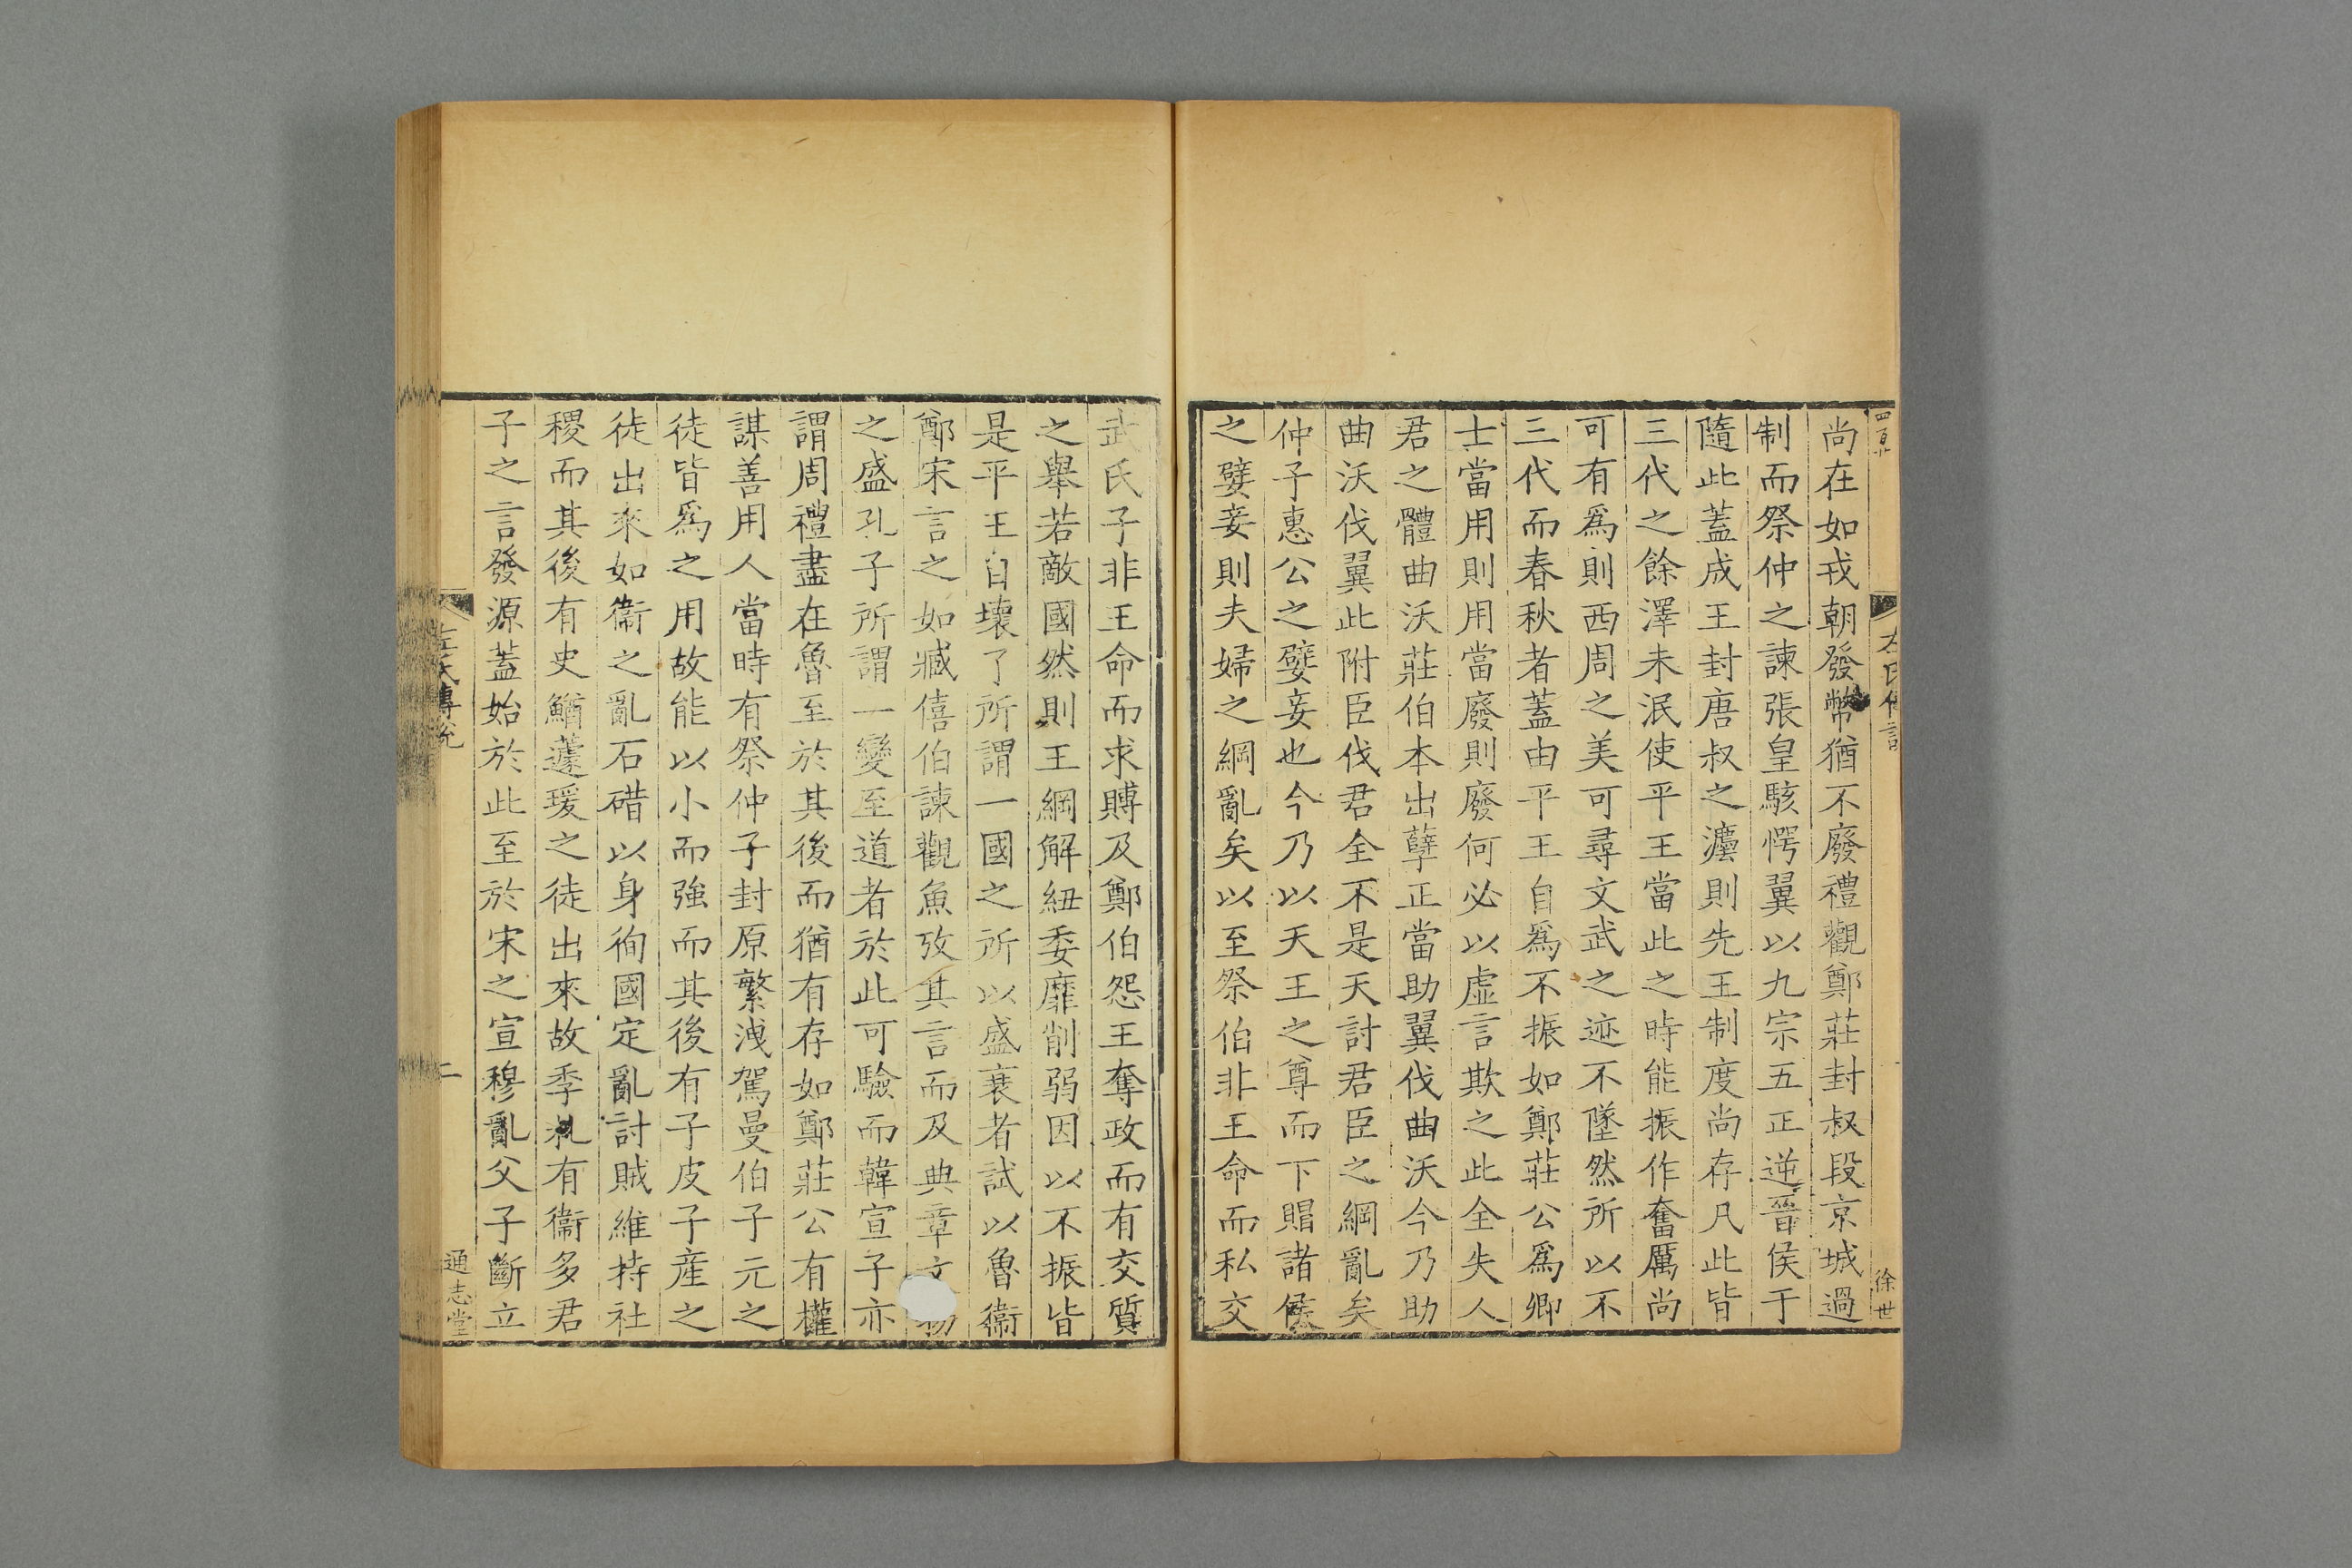 尚在如戎朝發幣猶不廢禮觀鄭莊封叔段京城過
制而祭仲之諫張皇駭愕翼以九宗五正逆晉侯于
隨此蓋成王封唐叔之灋則先王制度尚存凡此皆
三代之餘澤未泯使平王當此之時能振作奮厲尚
可有爲則西周之美可尋文武之迹不墜然所以不
三代而春秋者蓋由平王自爲不振如鄭莊公爲卿
士當用則用當廢則廢何必以虛言欺之此全失人
君之體曲沃莊伯本出孽正當助翼伐曲沃今乃助
曲沃伐翼此附臣伐君全不是天討君臣之綱亂矣
仲子惠公之嬖妾也今乃以天王之尊而下賵諸侯
之嬖妾則夫婦之綱亂矣以至祭伯非王命而私交
徐世
武氏子非王命而求賻及鄭伯怨王奪政而有交質
之舉若敵國然則王綱解紐委靡削弱因以不振皆
是平王自壞了所謂一國之所以盛衰者試以魯衞
鄭宋言之如臧僖伯諫觀魚攷其言而及典章文物
之盛孔子所謂一變至道者於此可驗而韓宣子亦
謂周禮盡在魯至於其後而猶有存如鄭莊公有權
謀善用人當時有祭仲子封原繁洩駕曼伯子元之
徒皆爲之用故能以小而強而其後有子皮子產之
徒出來如衞之亂石碏以身徇國定亂討賊維持社
稷而其後有史鰌蘧瑗之徒出來故季札有衞多君
子之言發源蓋始於此至於宋之宣穆亂父子斷立
左氏傳說
二
通志堂